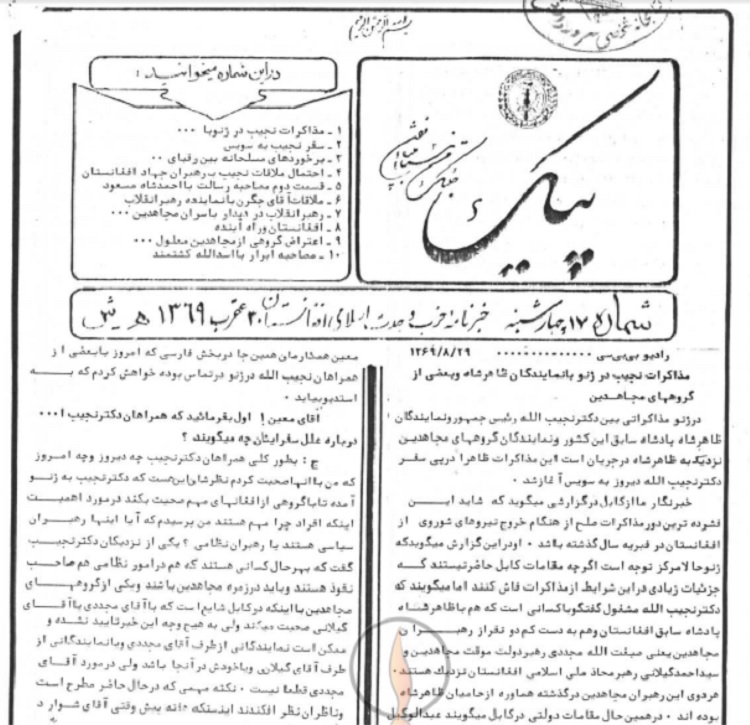 بسم الله الرحمن الرحیم
پیک
در این شماره میخوانید :
۱ ـ مذاکرات نجیب در ژنو با ۰۰۰
۲ ـ سفر نجیب به سویس
۳ ـ برخوردهای مسلحانه بین رقبای ۰۰
۴ ـ احتمال ملاقات نجیب با رهبران جهاد افغانستان
۵ ـ قسمت دوم مصاحبه رسالت با احمدشاه مسعود
۶ ـ ملاقات آقای جگرن با نماینده رهبر انقلاب
۷ ـ رهبر انقلاب در دیدار با سران مجاهدین ۰۰۰
۸ ـ افغانستان و راه آینده
۹ ـ اعتراض گروهی از مجاهدین معلول ۰۰۰
۱۰ ـ مصاحبه ابرار با اسدالله کشتمند
شماره ۱۷ چهارشنبه خبرنامه حزب وحدت اسلامی افغانستان ۳۰ عقرب ۱۳۶۹ ه ش
رادیو بی بی سی ۰۰۰۰۰۰۰۰۰۰۰ ۱۳۶۹/۸/۲۹
مذاکرات نجیب در ژنو با نمایندگان ظاهرشاه و بعضی از
گروههای مجاهدین
در ژنو مذاکراتی بین دکتر نجیب الله رئیس جمهور و نمایندگان
ظاهرشاه پادشاه سابق این کشور و نمایندگان گروههای مجاهدین
نزدیک به ظاهرشاه در جریان است این مذاکرات ظاهرا در پی سفر
دکتر نجیب الله دیروز به سویس آغاز شد ۰
خبرنگار ما از کابل در گزارشی میگوید که شاید این
فشرده ترین دور مذاکرات صلح از هنگام خروج نیروهای شوروی از
افغانستان در فبریه سال گذشته باشد ۰ او در این گزارش میگوید که
ژنو حالا مرکز توجه است اگرچه مقامات کابل حاضر نیستند که
جزئیات زیادی در این شرایط از مذاکرات فاش کنند اما میگویند که
دکتر نجیب الله مشغول گفتگو با کسانی است که هم با ظاهرشاه
پادشاه سابق افغانستان و هم به دست کم دو نفر از رهبران
مجاهدین یعنی صبغت الله مجددی رهبر دولت موقت مجاهدین و
سید احمد گیلانی رهبر محاذ ملی اسلامی افغانستان نزدیک هستند ۰
هر دوی این رهبران مجاهدین در گذشته همواره از حامیان ظاهرشاه
بوده اند ۰ در همین حال مقامات دولتی در کابل میگویند عبدالوکیل
معین همکارمان همین جا در بخش فارسی که امروز با بعضی از
همراهان نجیب الله در ژنو در تماس بوده خواهش کردم که به
استدیو بیاید ۰
آقای معین ! اول بفرمائید که همراهان دکتر نجیب ا ۰۰۰
درباره علل سفر ایشان چه میگویند ؟
ج : بطور کلی همراهان دکتر نجیب چه دیروز و چه امروز
که من با آنها صحبت کردم نظرشان این هست که دکتر نجیب به ژنو
آمده تا با گروهی از افغانهای مهم صحبت بکند در مورد اهمیت
اینکه افراد چرا مهم هستند من پرسیدم که آیا اینها رهبران
سیاسی هستند یا رهبران نظامی ؟ یکی از نزدیکان دکتر نجیب
گفت که بهر حال کسانی هستند که هم در امور نظامی هم صاحب
نفوذ هستند و باید در زمره مجاهدین باشند و یکی از گروههای
مجاهدین با اینکه در کابل شایع است که با آقای مجددی یا آقای
گیلانی صحبت میکند ولی به هیچ وجه این خبر تایید نشده و
ممکن است نمایندگانی از طرف آقای مجددی و یا نمایندگانی از
طرف آقای گیلانی و یا خودش در آنجا باشد ولی در مورد آقای
مجددی قطعا نیست ۰ نکته مهمی که در حال حاضر مطرح است
و ناظران نظر افکندند اینستکه پیش وقتی آقای شوارد